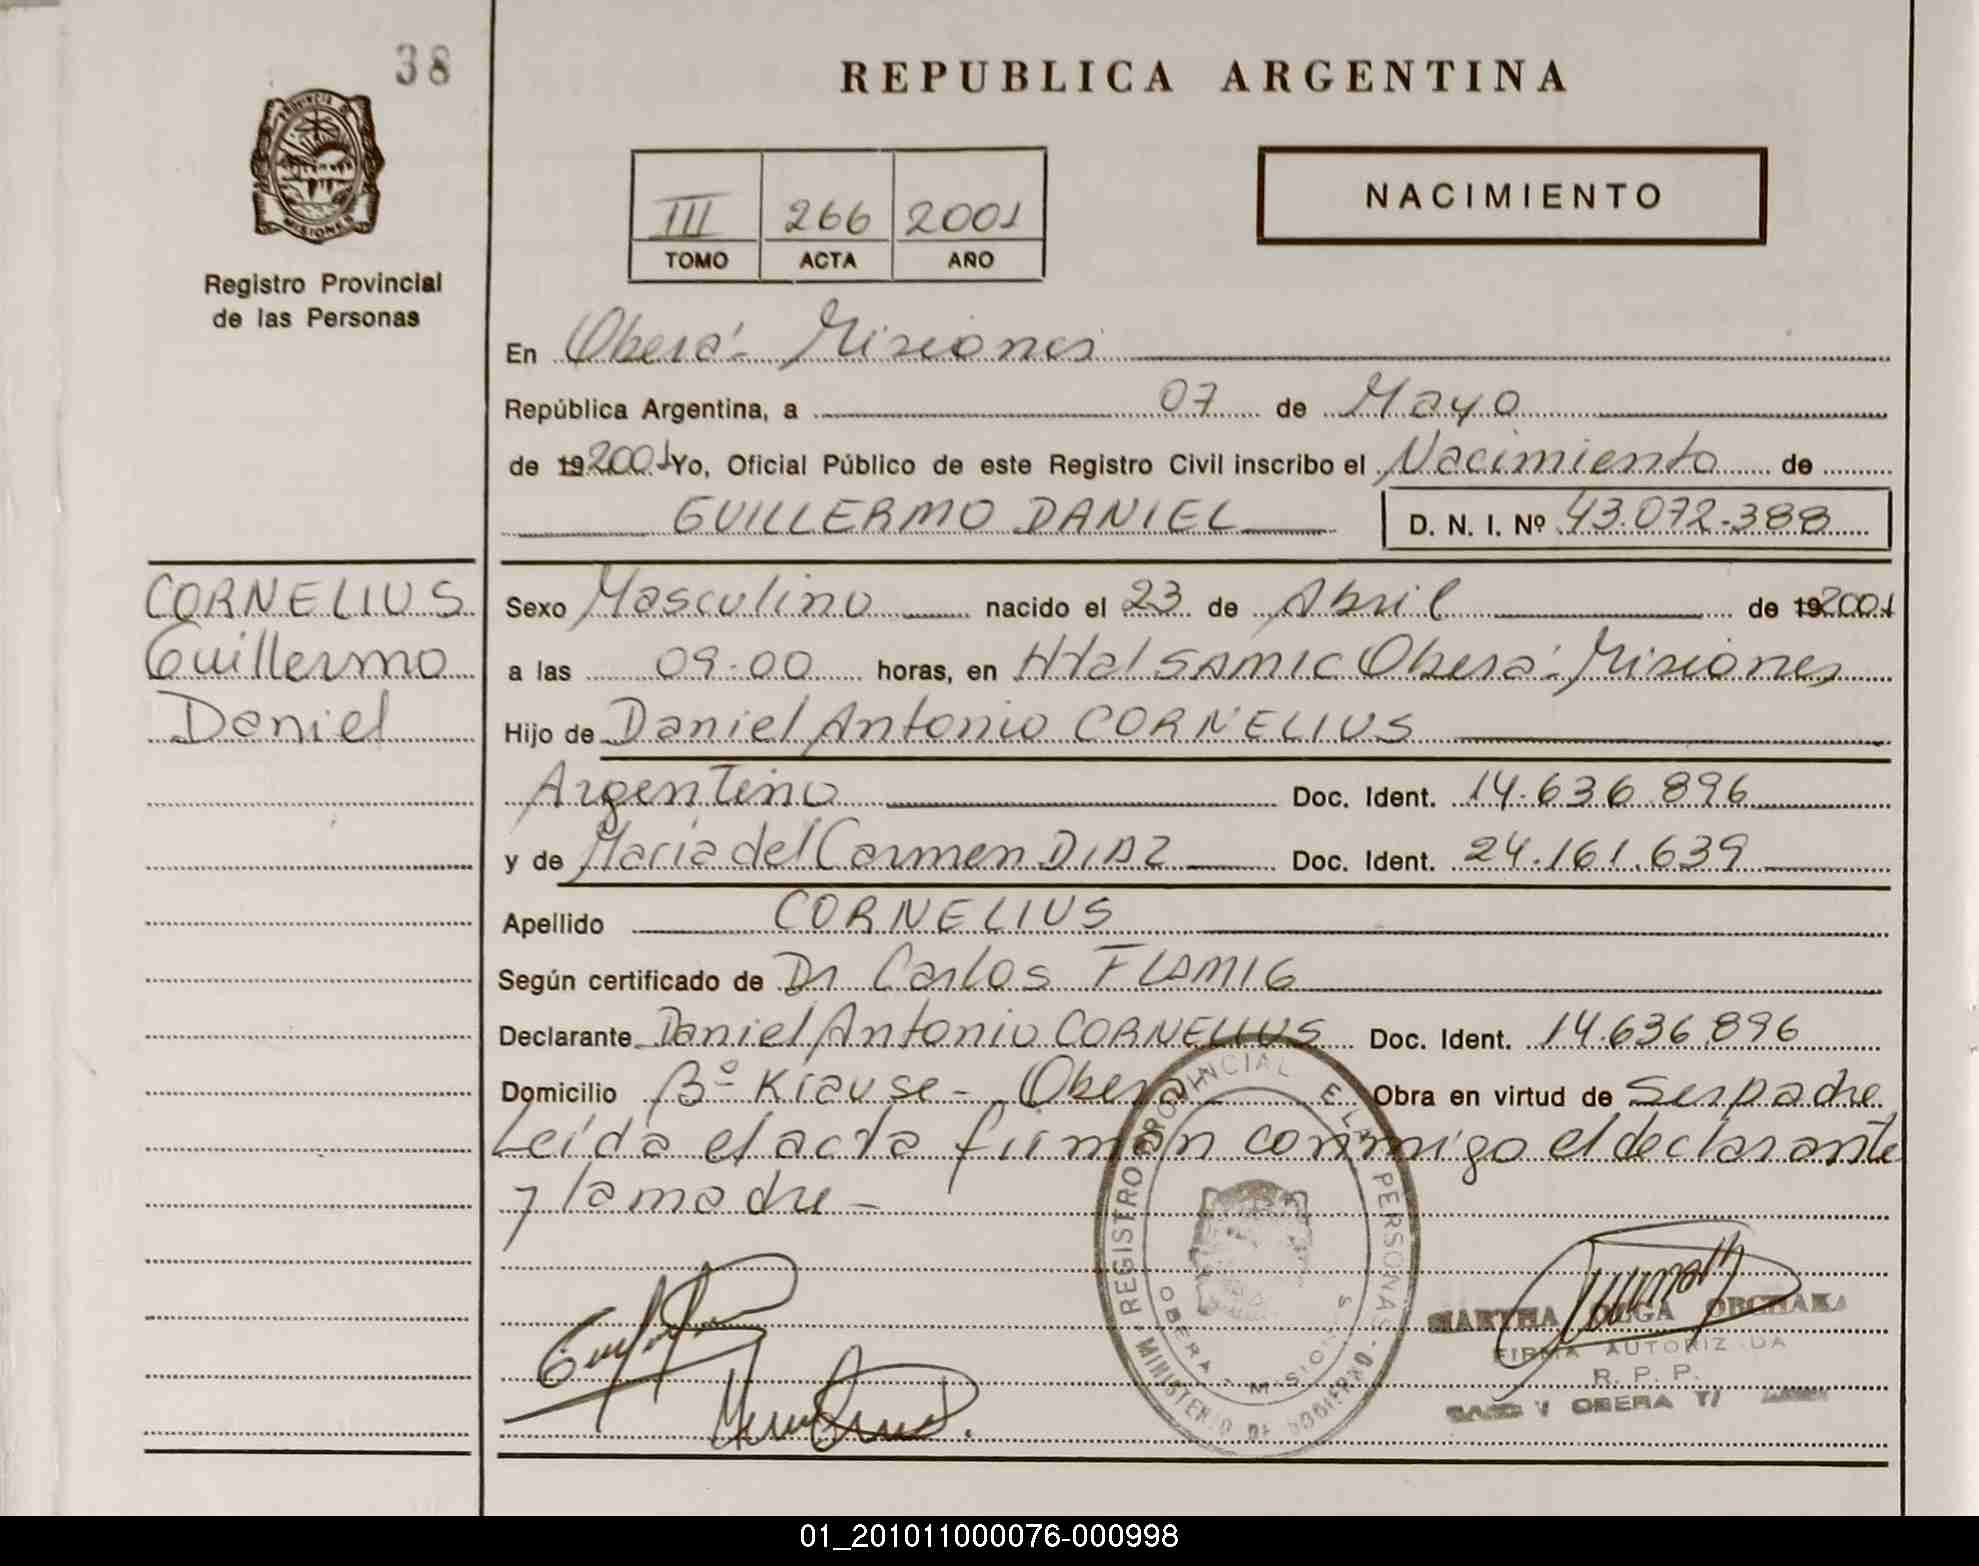 38
REPUBLICA ARGENTINA
PROVINCIA DE
MISIONES
Registro Provincial
de las Personas
III 266 2001
TOMO ACTA AÑO
NACIMIENTO
En Oberá - Misiones
República Argentina, a 07 de Mayo
de 19 2001 Yo, Oficial Público de este Registro Civil inscribo el Nacimiento de
GUILLERMO DANIEL D. N. I. Nº 43.072.388
CORNELIUS
Guillermo
Daniel
Sexo Masculino nacido el 23 de Abril de 19 2001
a las 09.00 horas, en Htal SAMIC Oberá - Misiones
Hijo de Daniel Antonio CORNELIUS
Argentino Doc. Ident. 14.636.896
y de María del Carmen DIAZ Doc. Ident. 24.161.639
Apellido CORNELIUS
Según certificado de Dr Carlos FLAMIG
Declarante Daniel Antonio CORNELIUS Doc. Ident. 14.636.896
Domicilio Bº Krause - Oberá Obra en virtud de Ser padre
Leída el acta firman conmigo el declarante
y la madre -
REGISTRO PROVINCIAL DE LAS PERSONAS
MINISTERIO DE GOBIERNO
OBERA MISIONES
MARTHA OLGA
FIRMA AUTORIZADA
R. P. P.
OBERA
01_201011000076-000998